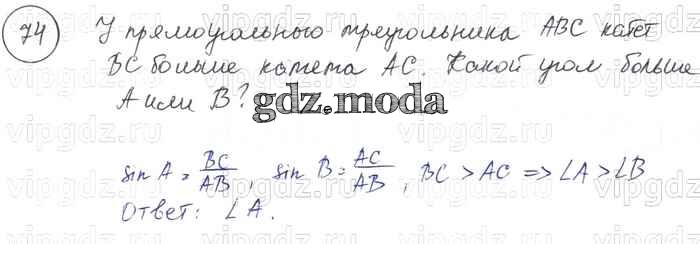 74 У прямоугольного треугольника ABC катет
BC больше катета AC. Какой угол больше
A или B?
gdz.moda
sin A = BC/AB, sin B = AC/AB, BC > AC => ∠A > ∠B
Ответ: ∠A.
vipgdz.ru